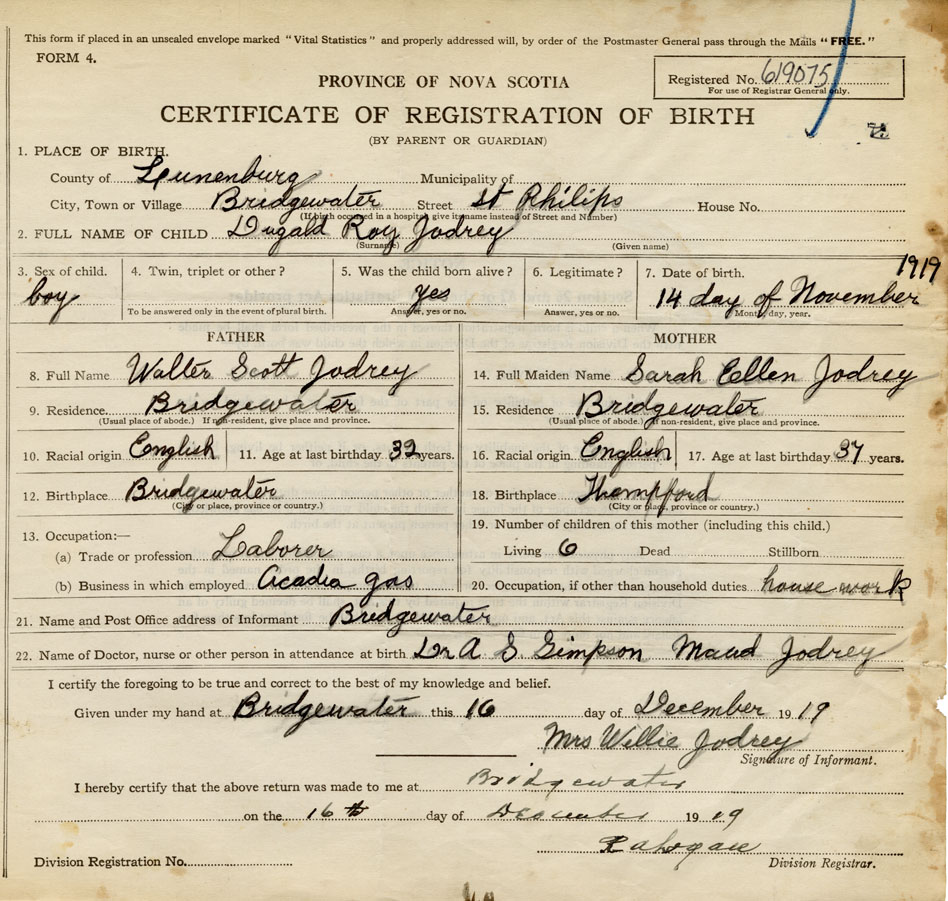 This form if placed in an unsealed envelope marked "Vital Statistics" and properly addressed will, by order of the Postmaster General pass through the Mails "FREE."
FORM 4.
PROVINCE OF NOVA SCOTIA
Registered No. 619075
For use of Registrar General only.
CERTIFICATE OF REGISTRATION OF BIRTH
(BY PARENT OR GUARDIAN)
1. PLACE OF BIRTH.
County of Lunenburg Municipality of
City, Town or Village Bridgewater Street St Philips House No.
(If birth occurred in a hospital give its name instead of Street and Number)
2. FULL NAME OF CHILD Dugald Roy Jodrey
(Surname) (Given name)
3. Sex of child. 4. Twin, triplet or other? 5. Was the child born alive? 6. Legitimate? 7. Date of birth. 1919
boy yes 14 day of November
To be answered only in the event of plural birth. Answer, yes or no. Answer, yes or no. Month, day, year.
FATHER MOTHER
8. Full Name Walter Scott Jodrey 14. Full Maiden Name Sarah Ellen Jodrey
9. Residence. Bridgewater 15. Residence Bridgewater
(Usual place of abode.) If non-resident, give place and province. (Usual place of abode.) If non-resident, give place and province.
10. Racial origin English 11. Age at last birthday 39 years. 16. Racial origin English 17. Age at last birthday 37 years.
12. Birthplace Bridgewater 18. Birthplace Hempford
(City or place, province or country.) (City or place, province or country.)
13. Occupation:— 19. Number of children of this mother (including this child.)
(a) Trade or profession Laborer Living 6 Dead Stillborn
(b) Business in which employed Acadia gas 20. Occupation, if other than household duties house work
21. Name and Post Office address of Informant Bridgewater
22. Name of Doctor, nurse or other person in attendance at birth Dr A S Simpson Maud Jodrey
I certify the foregoing to be true and correct to the best of my knowledge and belief.
Given under my hand at Bridgewater this 16 day of December 1919
Mrs Willie Jodrey
Signature of Informant.
I hereby certify that the above return was made to me at Bridgewater
on the 16th day of December 1919
Division Registration No. Division Registrar.